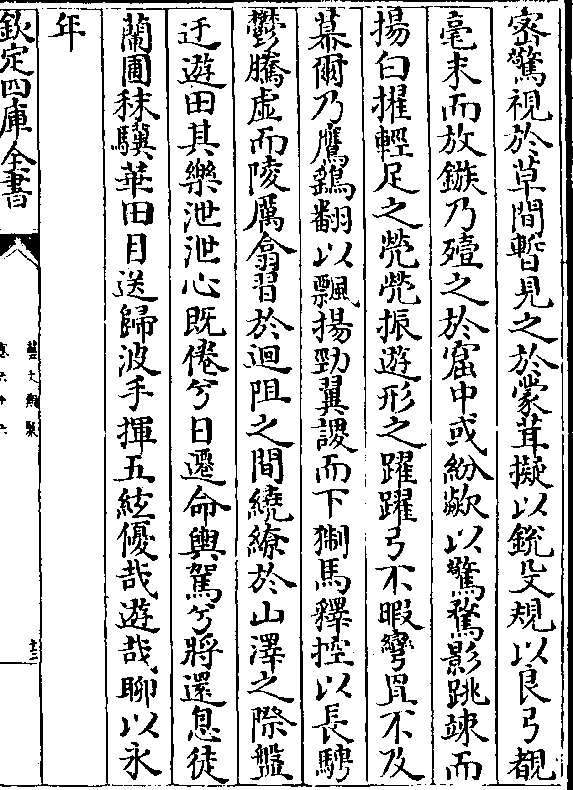 宻驚視於草間暫見之於蒙茸擬以銳殳規以良弓覩
毫末而放鏃乃殪之於窟中或紛歘以驚騖影跳竦而
揚白擢輕足之㷀㷀振遊形之躍躍弓不暇彎罝不及
幕爾乃鷹鷂翻以飄揚勁翼謖而下猘馬釋控以長騁
鬱騰虛而陵厲翕習於迴阻之間繞繚於山澤之際盤
于遊田其樂泄泄心既倦兮日遷命輿駕兮將還息徒
蘭圃秣驥華田目送歸波手揮五絃優哉遊哉聊以永
年
欽定四庫全書
藝文類聚